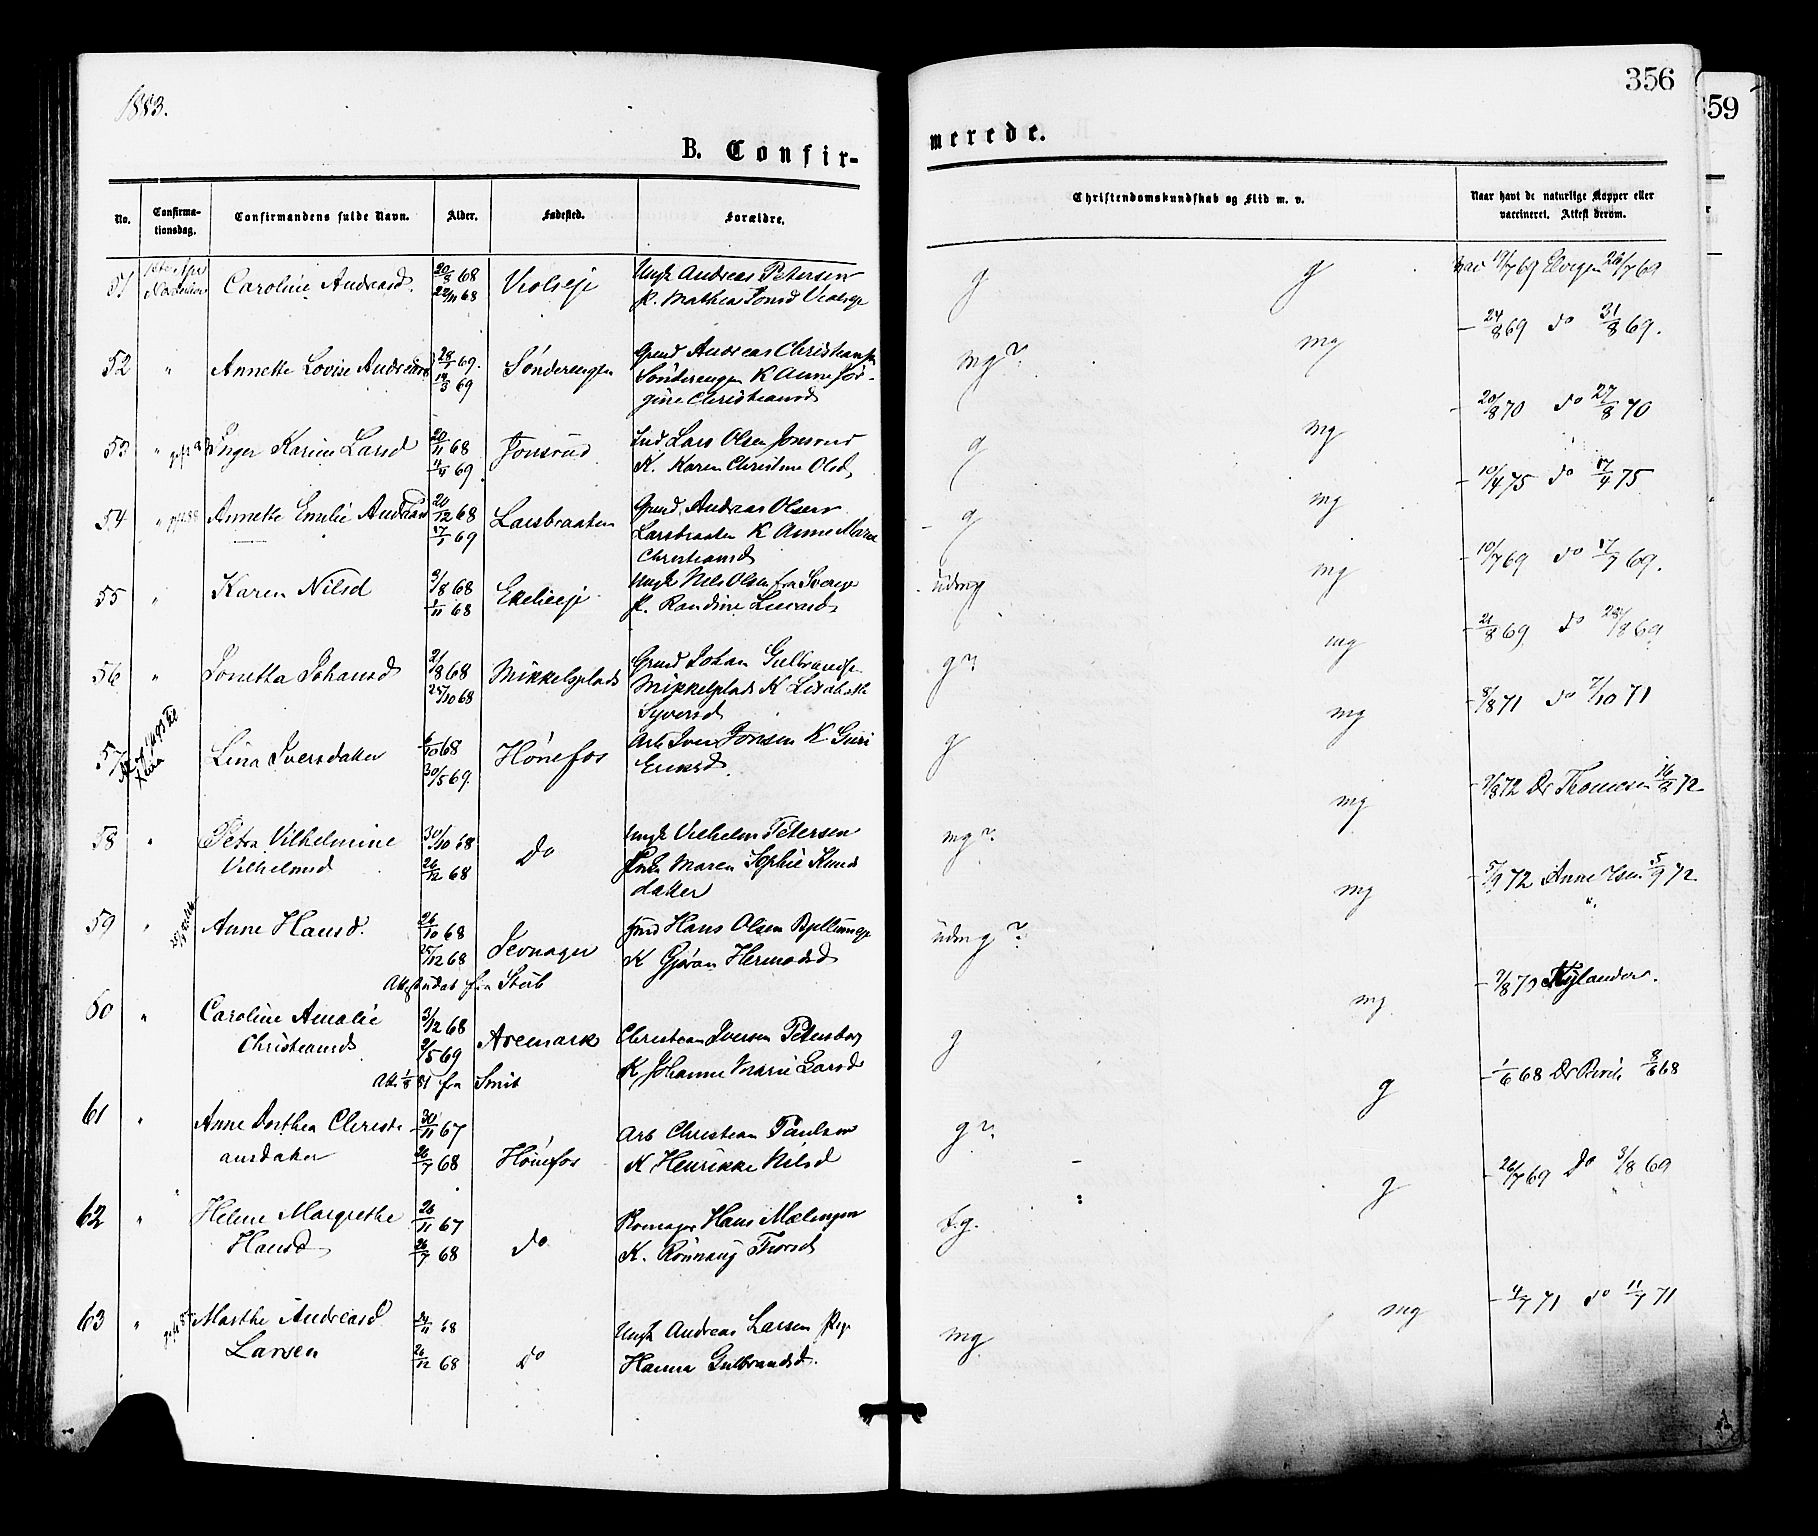 1883.
356
359
B. Confir-
merede.
No.
Confirma-
tionsdag.
Confirmandens fulde Navn.
Alder.
Fødested.
Forældre.
Christendomskundskab og Flid m. v.
Naar havt de naturlige Kopper eller
vaccineret. Attest derom.
51 Caroline Andreasd. 20/8 68 Ungk Andreas Petersen g g 17/7 69 26/7 69
22/11 68 P. Mathea
52 " Annette Lovise 28/1 69. Sønderengen Grmd Andreas Christiansen mg? mg 24/8 69 do 31/8 69.
14/3 69 Sønderengen K Anne Jør-
gine Christiansd
53 " Inger Karine Larsd 20/11 68 Jonsrud Ind Lars Olsen Jonsrud g mg 20/8 70 do 27/8 70
4/4 69 K. Karen Christine Olsd
54 " Annette Emilie Andreasd 20/12 68 Larsbraaten Grmd. Andreas Olsen g mg 10/4 75 do 17/4 75
17/1 69 Larsbraaten K Anne Marie
Christiansd
55 " Karen Nilsd 3/8 68 Ekelieje Ungk Nels Olsen fra Sverige udmg mg 10/7 69 do 17/7 69.
1/11 68 P. Randine
56 " Jonetta Johansd 2/8 68 Mikkelsplads Grmd Johan Gulbrandsen g? mg 21/8 69 do 28/8 69
25/10 68 Mikkelsplads K Lisabeth
Syversd
57 Lina Iversdatter 6/10 68 Hønefos Arb Iver Jonsen K. Guri g mg 8/8 71 do 7/10 71
30/5 69. Eriksd.
58 " Petra Vilhelmine 30/10 68 Do Ungk Vilhelm Petersen mg? mg 2/8 72 Dr Thomesen 16/8 72
Vilhelmsd 26/12 68 Maren Sophie Knuds
datter
59 " Anne Hansd. 26/10 68 Jevnager Hans Olsen udmg? mg 5/9 72 Anne 15/9 72
25/12 68 K Gjøran Hermodsd
fra Stub
60 " Caroline Amalie 3/12 68 Aremark Christian Iversen Petersborg g mg
Christiansd 2/5 69 K Johanne Marie Larsd
Att. 1/8 81 fra Smit
61 " Anne Dorthea Christi- 30/11 67 Hønefos Arb Christian Paulsen g? g 1/6 68 Dr 8/6 68
ansdatter 26/7 68 K Henrikke Nilsd
62 " Helene Margrethe 26/11 67 do Hans t.g. g 26/7 69 Do 3/8 69
Hansd 26/7 68 K. Rønnaug Thorsd
63 " Marthe Andreasd 24/11 68 Do Ungk Andreas Larsen Pige mg mg 4/7 71 do 11/7 71
Larsen 26/12 68 Hanna Gulbrandsd.